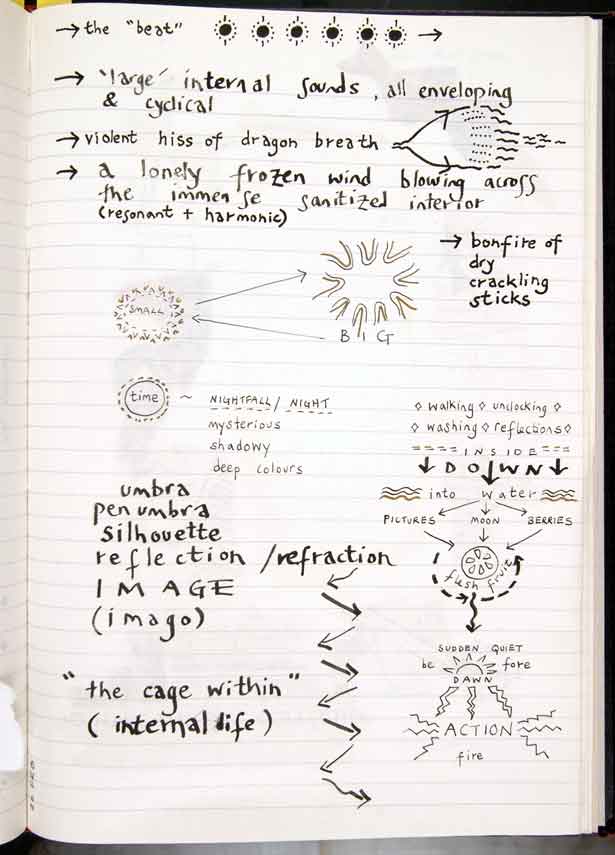 → the "beat" →
→ 'large' internal sounds, all enveloping
& cyclical
→ violent hiss of dragon breath
→ a lonely frozen wind blowing across
the immense sanitized interior
(resonant + harmonic)
→ bonfire of
dry
crackling
sticks
SMALL
BIG
time ~ NIGHTFALL / NIGHT
mysterious
shadowy
deep colours
umbra
penumbra
silhouette
reflection / refraction
IMAGE
(imago)
"the cage within"
(internal life)
◇ walking ◇ unclocking ◇
◇ washing ◇ reflections ◇
INSIDE
↓ DOWN ↓
into water
PICTURES MOON BERRIES
flesh fruit
SUDDEN QUIET
be fore
DAWN
ACTION
fire